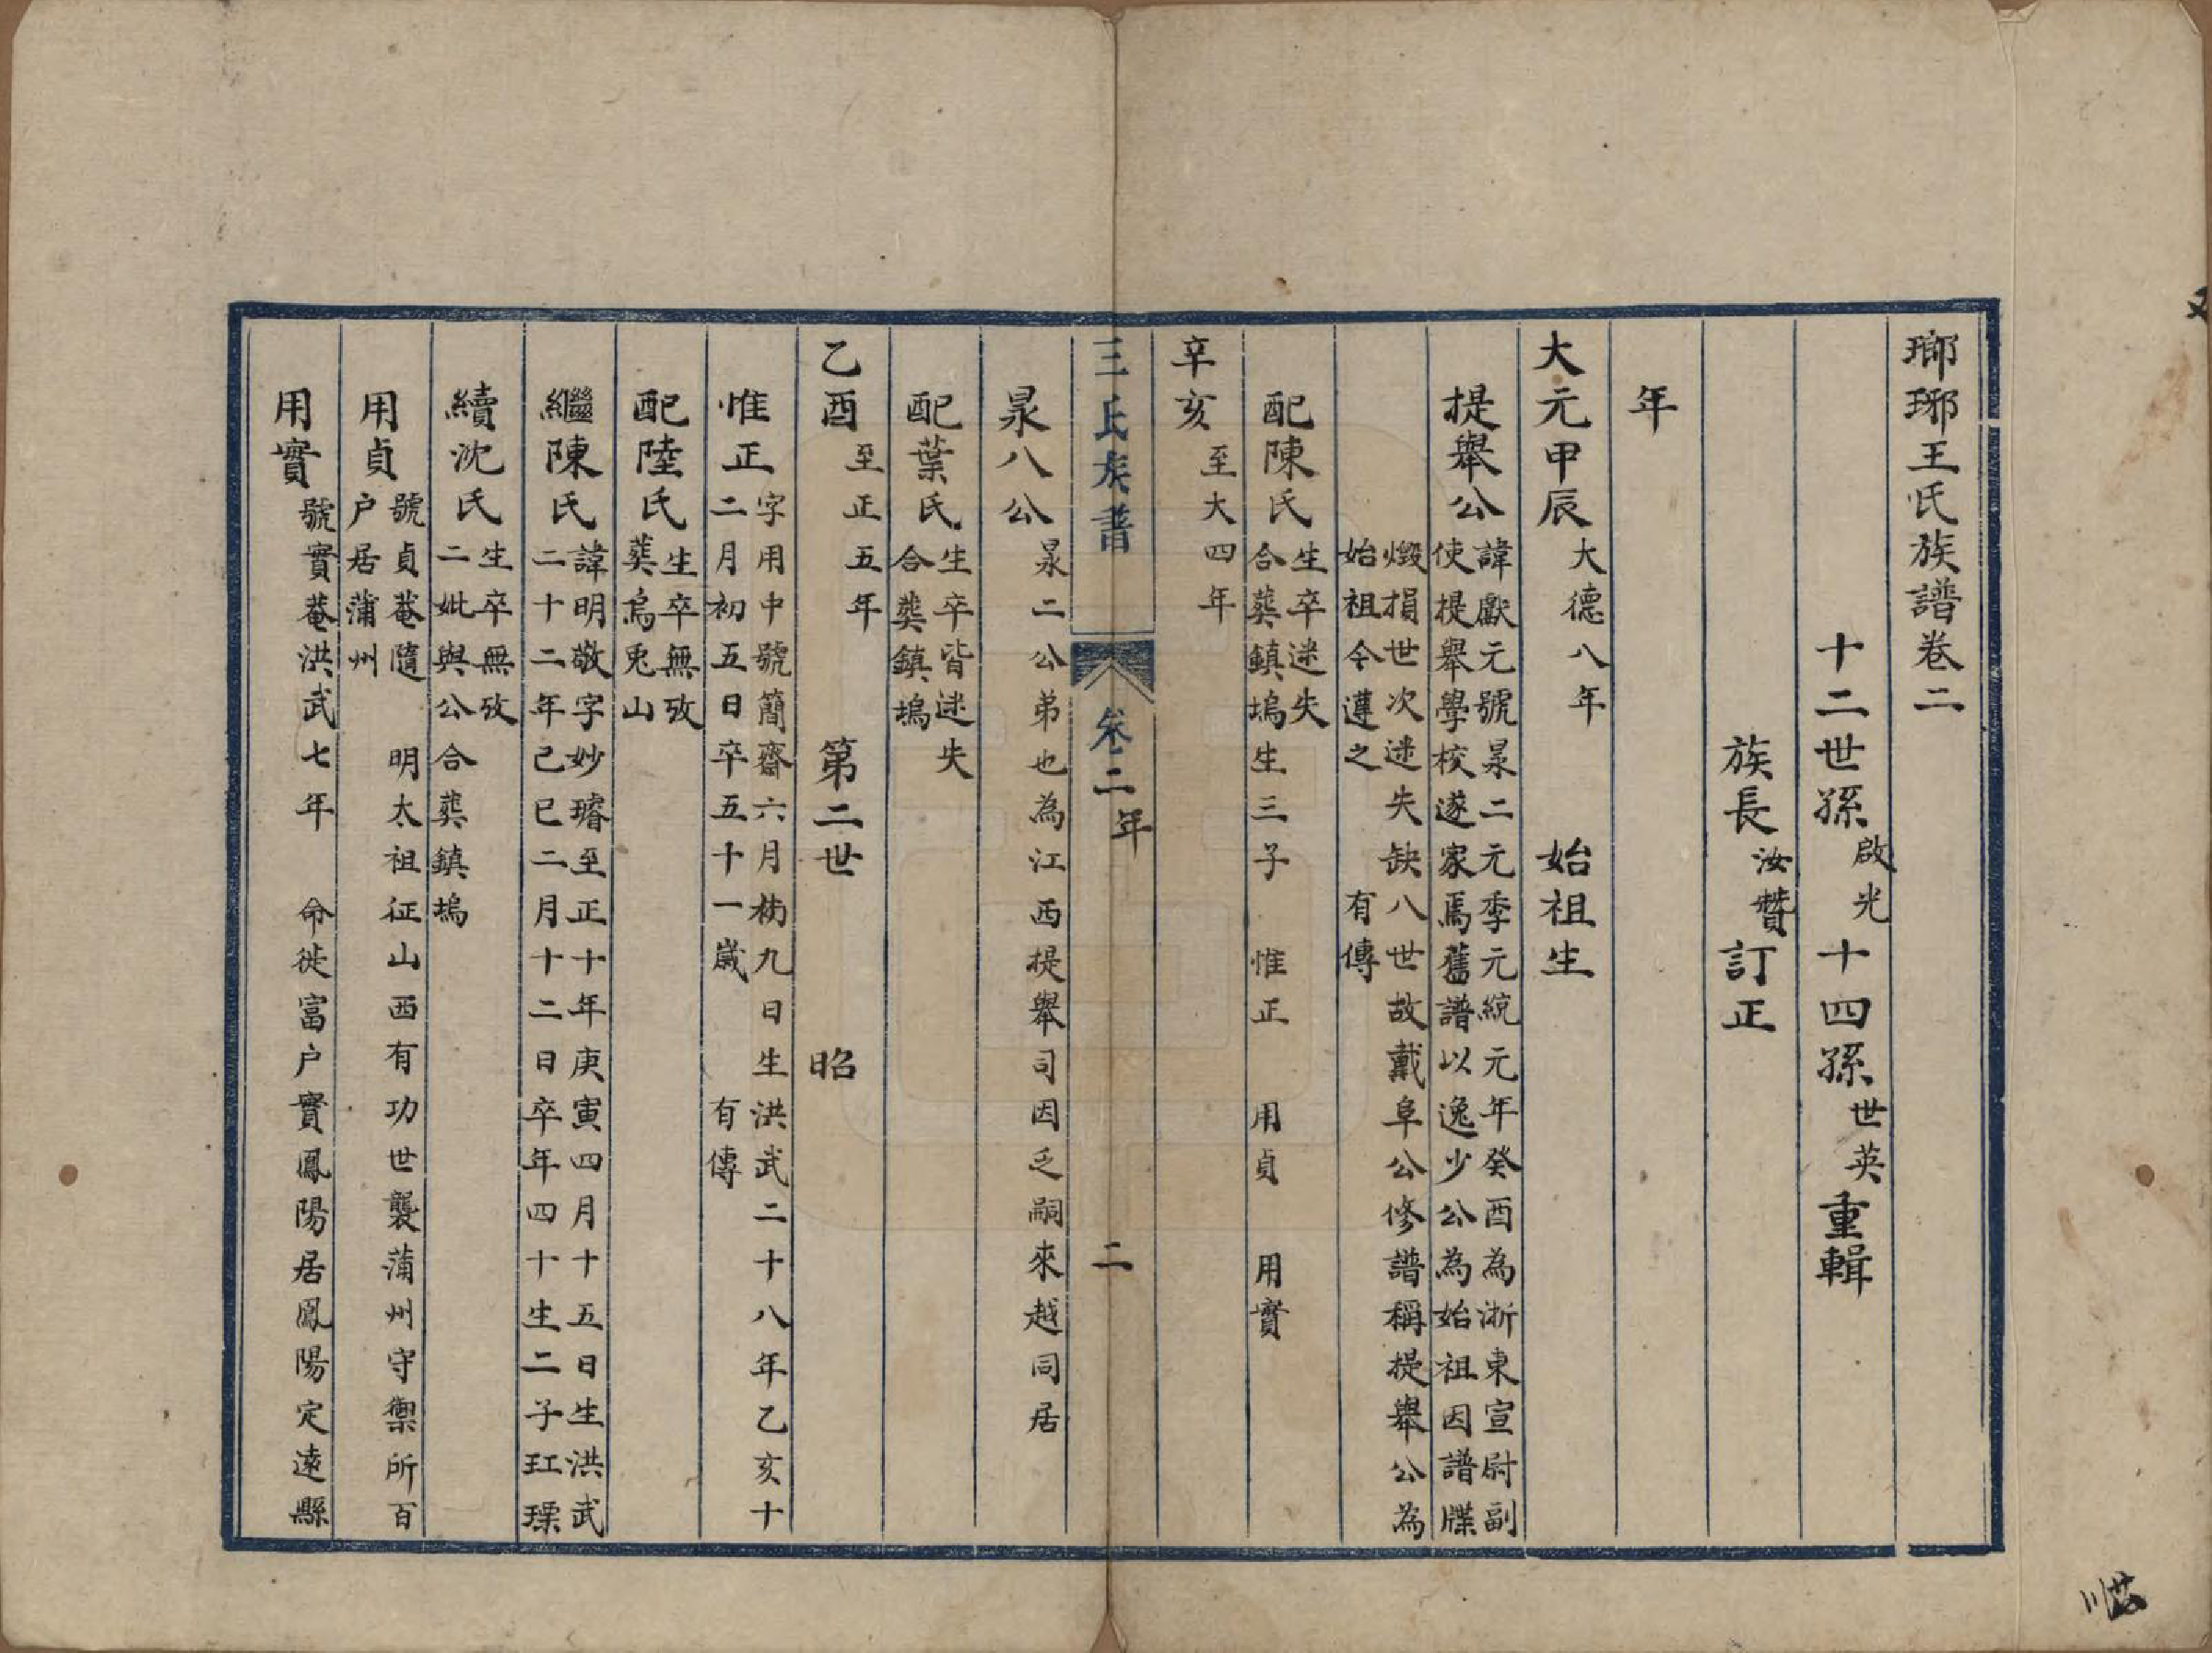 瑯琊王氏族譜卷二
十二世孫啟光十四孫世英重輯
族長汝贊訂正
年
大元甲辰大德八年 始祖生
提舉公諱獻元號杲二元季元統元年癸酉為浙東宣尉副
使提舉學校遂家焉舊譜以逸少公為始祖因譜牒
燬損世次迷失缺八世故戴阜公修譜稱提舉公為
始祖今遵之 有傳
配陳氏生卒迷失
合葬鎮塢生三子 惟正 用貞 用實
辛亥至大四年
王氏族譜 卷二年 二
杲八公杲二公弟也為江西提舉司因乏嗣來越同居
配葉氏生卒皆迷失
合葬鎮塢
乙酉至正五年 第二世 昭
惟正字用中號簡齋六月初九日生洪武二十八年乙亥十
二月初五日卒五十一歲 有傳
配陸氏生卒無攷
葬烏兎山
繼陳氏諱明敬字妙璿至正十年庚寅四月十五日生洪武
二十二年己巳二月十二日卒年四十生二子玒瑮
續沈氏生卒無攷
二妣與公合葬鎮塢
用貞號貞菴隨 明太祖征山西有功世襲蒲州守禦所百
户居蒲州
用實號實菴洪武七年 命徙富户實鳳陽居鳳陽定遠縣